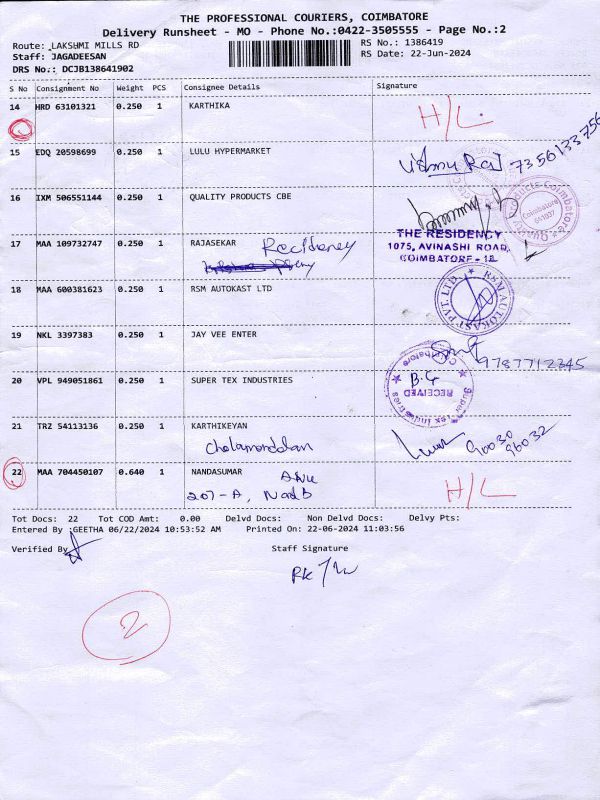 THE PROFESSIONAL COURIERS, COIMBATORE
Delivery Runsheet - MO - Phone No.:0422-3505555 - Page No.:2
Route: LAKSHMI MILLS RD
RS No.: 1386419
Staff: JAGADEESAN
RS Date: 22-Jun-2024
DRS No.: DCJB138641902
S No Consignment No Weight PCS Consignee Details Signature
14 HRD 63101321 0.250 1 KARTHIKA H/L
15 EDQ 20598699 0.250 1 LULU HYPERMARKET Vishnu Raj 7356133756
16 IXM 506551144 0.250 1 QUALITY PRODUCTS CBE
Coimbatore
641037
THE RESIDENCY
1075, AVINASHI ROAD,
COIMBATORE - 18
17 MAA 109732747 0.250 1 RAJASEKAR Recidency
18 MAA 600381623 0.250 1 RSM AUTOKAST LTD
RSM AUTOKAST PVT. LTD
19 NKL 3397383 0.250 1 JAY VEE ENTER 9787712345
20 VPL 949051861 0.250 1 SUPER TEX INDUSTRIES
B.G
RECEIVED
Super Tex Industries
Coimbatore
21 TRZ 54113136 0.250 1 KARTHIKEYAN
90030
96032
22 MAA 704450107 0.640 1 NANDASUMAR H/L
207-A,
Tot Docs: 22 Tot COD Amt: 0.00 Delvd Docs: Non Delvd Docs: Delvy Pts:
Entered By :GEETHA 06/22/2024 10:53:52 AM Printed On: 22-06-2024 11:03:56
Verified By
Staff Signature
2